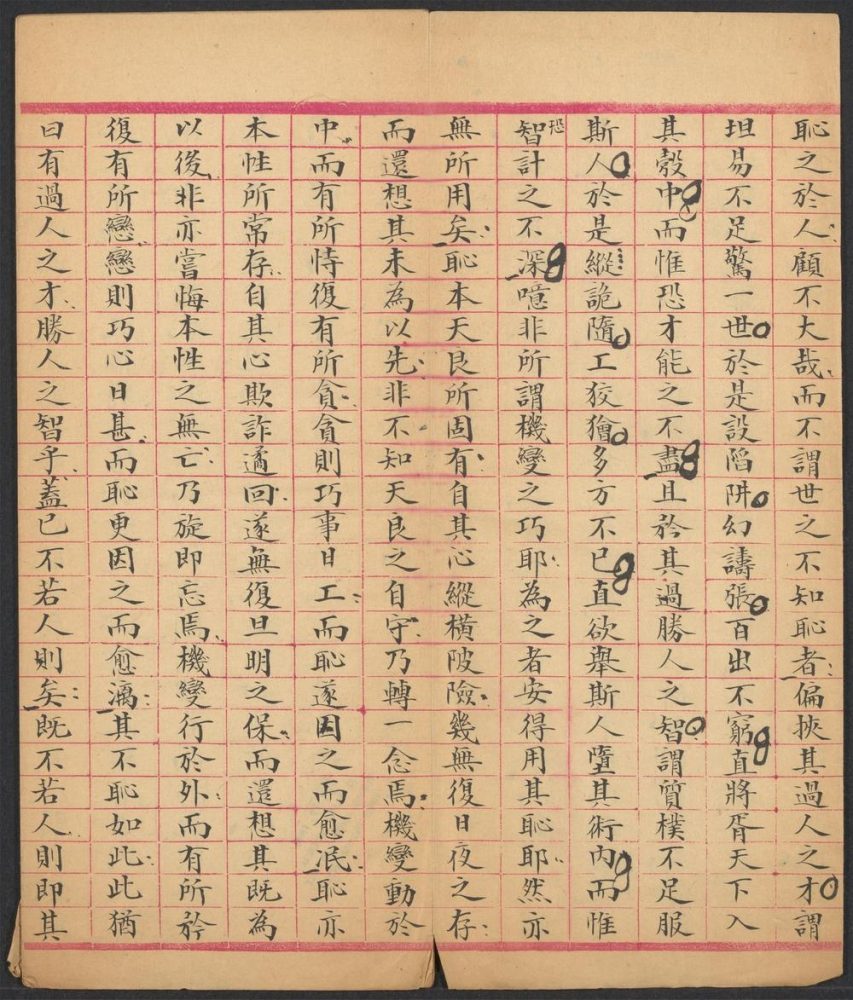 恥之於人顧不大哉而不謂世之不知恥者偏挾其過人之才謂
坦易不足驚一世於是設陷阱幻譸張百出不窮直將胥天下入
其彀中而惟恐才能之不盡且矜其過勝人之智謂質樸不足服
斯人於是縱詭隨工狡獪多方不已直欲舉斯人墮其術內而惟
恐智計之不深噫非所謂機變之巧耶為之者安得用其恥耶然亦
無所用矣恥本天良所固有自其心縱橫陂險幾無復日夜之存
而還想其未為以先非不知天良之自守乃轉一念焉機變動於
中而有所恃復有所貪貪則巧事日工而恥遂因之而愈泯恥亦
本性所常存自其心欺詐遹回遂無復旦明之保而還想其既為
以後非亦嘗悔本性之無亡乃旋即忘焉機變行於外而有所矜
復有所戀戀則巧心日甚而恥更因之而愈漓其不恥如此此猶
曰有過人之才勝人之智乎蓋已不若人則矣既不若人則即其